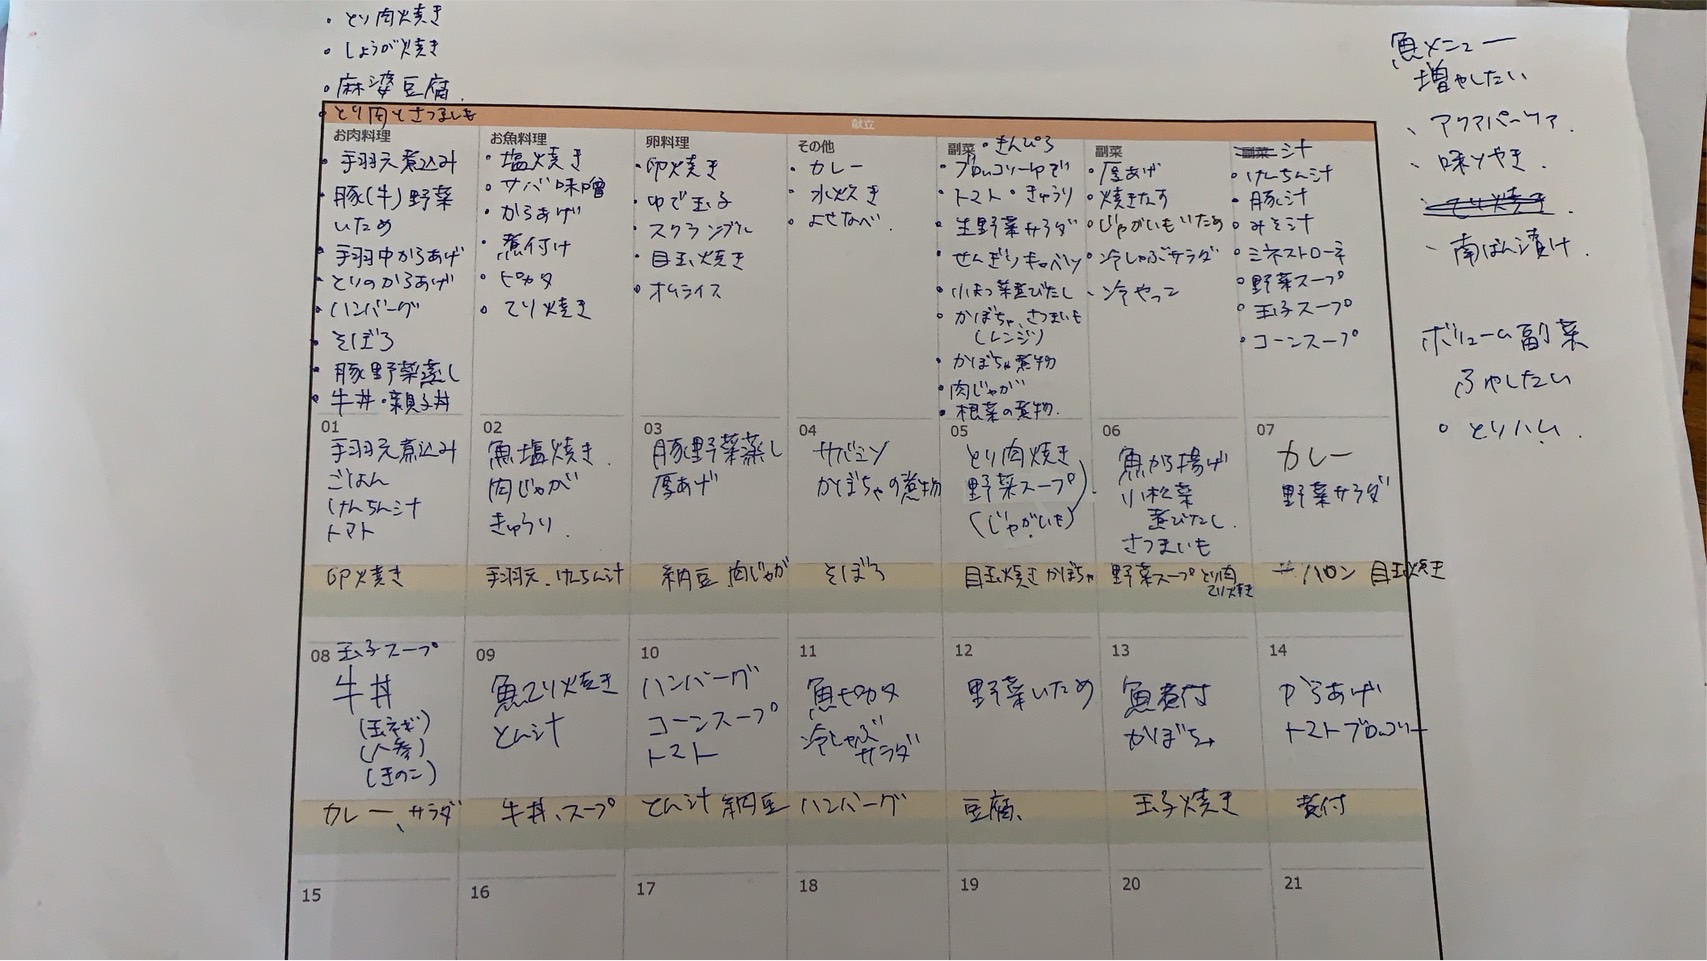 ・とり肉焼き
・しょうが焼き
・麻婆豆腐
・とり肉とさつまいも
献立
お肉料理
・手羽元煮込み
・豚(牛)野菜
いため
・手羽中からあげ
・とりのからあげ
・ハンバーグ
・そぼろ
・豚野菜蒸し
・牛丼・親子丼
お魚料理
・塩焼き
・サバ味噌
・からあげ
・煮付け
・ピカタ
・てり焼き
卵料理
・卵焼き
・ゆで玉子
・スクランブル
・目玉焼き
・オムライス
その他
・カレー
・水炊き
・よせなべ
副菜 ・きんぴら
・ブロッコリーゆで
・トマト・きゅうり
・生野菜サラダ
・せんぎりキャベツ
・小まつ菜煮びたし
・かぼちゃ、さつまいも
(レンジ)
・かぼちゃ煮物
・肉じゃが
・根菜の煮物
副菜
・厚あげ
・焼きなす
・じゃがいもいため
・冷しゃぶサラダ
・冷やっこ
副菜 汁
・けんちん汁
・豚汁
・みそ汁
・ミネストローネ
・野菜スープ
・玉子スープ
・コーンスープ
魚メニュー
増やしたい
、アクアパッツァ
、味りやき
てり焼き
、南ばん漬け
ボリューム副菜
ふやしたい
・とりハム
01
手羽元煮込み
ごはん
けんちん汁
トマト
卵焼き
02
魚塩焼き
肉じゃが
きゅうり
手羽元、けんちん汁
03
豚野菜蒸し
厚あげ
納豆 肉じゃが
04
サバミソ
かぼちゃの煮物
そぼろ
05
とり肉焼き
野菜スープ
(じゃがいも)
目玉焼き かぼちゃ
06
魚から揚げ
小松菜
煮びたし
さつまいも
野菜スープ とり肉
てり焼き
07
カレー
野菜サラダ
目玉焼き
08 玉子スープ
牛丼
(玉ネギ)
(人参)
(きのこ)
カレー、サラダ
09
魚てり焼き
とん汁
牛丼、スープ
10
ハンバーグ
コーンスープ
トマト
とん汁 納豆
11
魚ピカタ
冷しゃぶ
サラダ
ハンバーグ
12
野菜いため
豆腐、
13
魚煮付
かぼちゃ
玉子焼き
14
からあげ
トマトブロッコリー
煮付
15
16
17
18
19
20
21